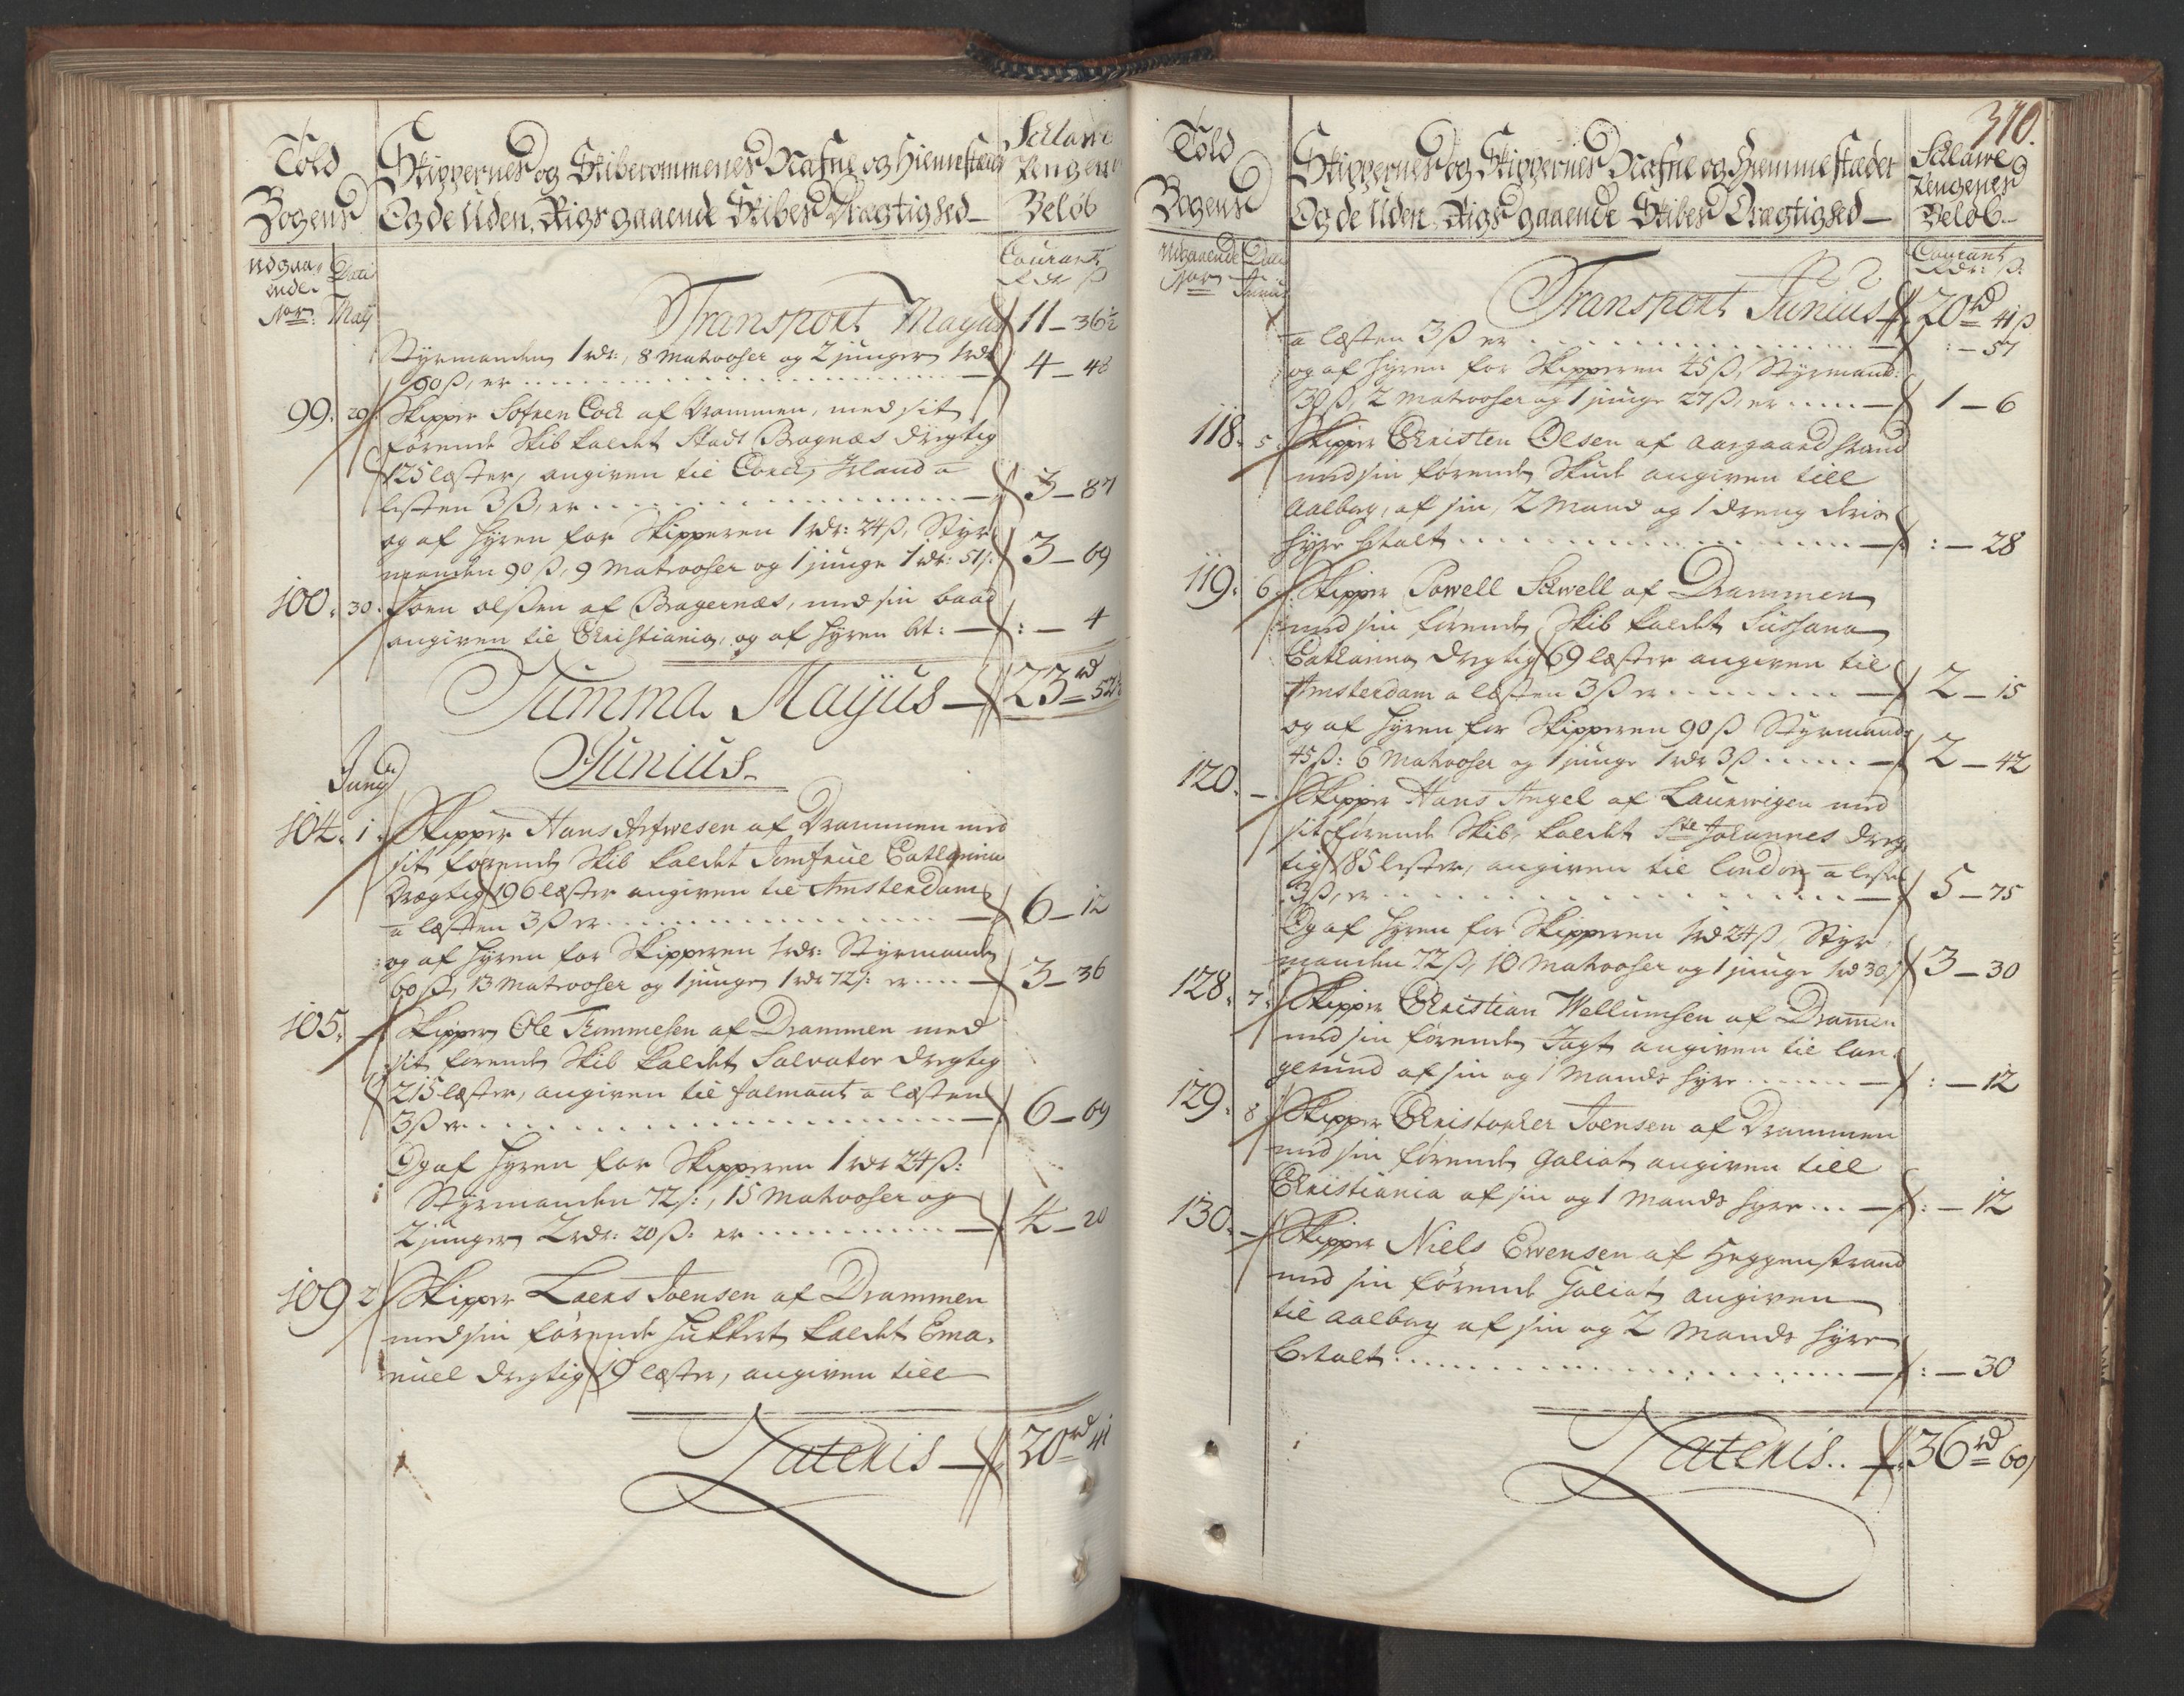 Told
Bogens
Skippernes og Skiberommenes Nafne og Hiemestæder
Og de Uden Rigs gaaende Skibes Drægtighed
Sclawe
Pengenes
Beløb
Udgaa-
ende
Nor:
Dati
Maij
Courant
Rdr ß
Transport Mayus 11 - 36½
Styrmanden 1 rdr:, 8 Matrooser og 2 junger 1 rdr
90 ß, er 4 - 48
99. 29. Skipper Sofren Cock af Drammen, med sit
førende Skib kaldet Stadt Bragnæs dregtig
125 læster, angiven til Corck, Irland a
lesten 3 ß, er 3 - 87
og af hyren for Skipperen 1 rdr: 24 ß, Styr
manden 90 ß, 9 Matrooser og 1 junge 1 rdr: 51 ß: 3 - 69
100. 30. Joen olsen af Bragernæs, med sin baad
angiven til Christiania, og af hyren bt: : - 4
Summa Mayus 23 rd 52½
Junij
Junius.
104. 1. Skipper Hans Arfwesen af Drammen med
sit førende Skib kaldet Jomfrue Catharina
Drægtig 196 læster angiven til Amsterdam
a læsten 3 ß er 6 - 12
og af hyren for Skipperen 1 rdr: Styrmanden
60 ß, 13 Matrooser og 1 junge 1 rdr 72 ß: er 3 - 36
105. - Skipper Ole Tommesen af Drammen med
sit førende Skib kaldet Salvator dregtig
215 læster, angiven til falmaut a læsten
3 ß er 6 - 69
Og af hyren for Skipperen 1 rdr 24 ß:
Styrmanden 72 ß:, 15 Matrooser og
2 junger 2 rdr: 20 ß: er 4 - 20
109 2 Skipper Laers Joensen af Drammen
med sin førende Hukkert kaldet Ema-
nuel dregtig 19 læster, angiven till
Lateris 20 rd 41
370.
Told
Bogens
Skippernes og Skippernes Nafne og Hiemmestæder
Og de Uden Rigs gaaende Skibes Drægtighed
Sclawe
Pengenes
Beløb
Udgaaende
Nor
Dati
Junius
Courant
Rdr: ß:
Transport Junius 20 rd 41 ß
a læsten 3 ß er : - 57
og af hyren for Skipperen 45 ß, Styrmand:
30 ß, 2 Matrooser og 1 junge 27 ß, er 1 - 6
118. 5. Skipper Christen Olsen af Aasgaardstrand
med sin førende Skude angiven till
Aalborg, af sin, 2 Mand og 1 dreng deris
hyre betalt : - 28
119. 6. Skipper Powell Schwell af Drammen
med sin førende Skib kaldet Sussana
Catharina dregtig 69 læster angiven til
Amsterdam a læsten 3 ß er 2 - 15
og af hyren for Skipperen 90 ß Styrmand:
45 ß: 6 Matrooser og 1 junge 1 rdr 3 ß 2 - 42
120. - Skipper Hans Angel af Laurwigen med
sit førende Skib kaldet Ste Johannes dreg-
tig 185 lester, angiven til London a lesten
3 ß, er 5 - 75
Og af hyren for Skipperen 1 rd 24 ß, Styr
manden 72 ß, 10 Matrooser og 1 junge 1 rd 30 ß 3 - 30
128. 7. Skipper Christian Wellumsen af Dramen
med sin førende Jagt angiven til lan-
gesund af sin og 1 Mands hyre : - 12
129. 8 Skipper Christopher Joensen af Drammen
med sin førende Galiot angiven till
Christiania af sin og 1 Mands hyre : - 12
130. - Skipper Niels Evensen af Heggenstrand
med sin førende Galiot angiven
til Aalborg af sin og 2 Mands hyre
betalt : - 30
Lateris 36 rd 60